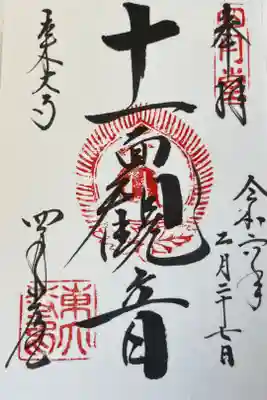 奉拝
令和六年
二月二十七日
十一面観音
東大寺
四月堂